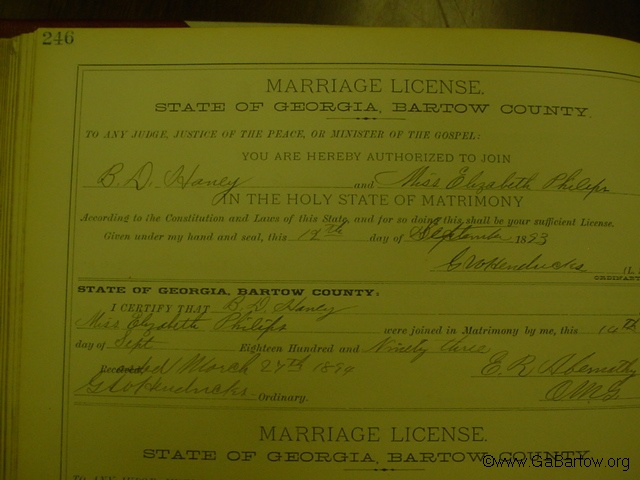 246
MARRIAGE LICENSE.
STATE OF GEORGIA, BARTOW COUNTY.
TO ANY JUDGE, JUSTICE OF THE PEACE, OR MINISTER OF THE GOSPEL:
YOU ARE HEREBY AUTHORIZED TO JOIN
B. D. Haney and Miss Elizabeth Philips
IN THE HOLY STATE OF MATRIMONY
According to the Constitution and Laws of this State, and for so doing this shall be your sufficient License.
Given under my hand and seal, this 12th day of September 1893
G W Hendricks (L.
ORDINARY
STATE OF GEORGIA, BARTOW COUNTY:
I CERTIFY THAT B. D. Haney
Miss Elizabeth Philips were joined in Matrimony by me, this 14th
day of Sept Eighteen Hundred and Ninety three
Recorded March 24th 1894 E. R. Abernathy
G W Hendricks Ordinary. O.M.G.
MARRIAGE LICENSE.
STATE OF GEORGIA, BARTOW COUNTY.
©www.GaBartow.org